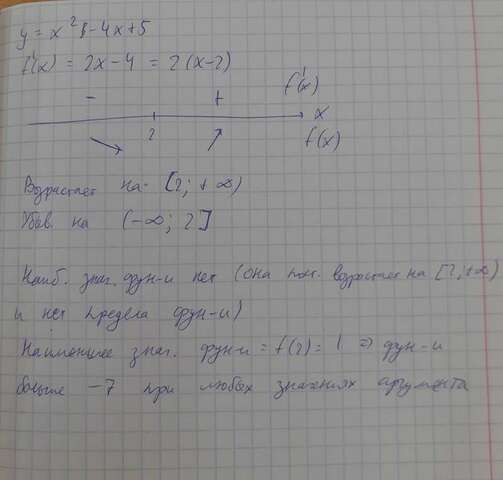 y = x² - 4x + 5
f'(x) = 2x - 4 = 2(x-2)
- + f'(x)
2 x
f(x)
Возрастает на [2; +∞)
Убыв. на (-∞; 2]
Наиб. знач. фун-и нет (она пост. возрастает на [2; +∞)
и нет предела фун-и)
Наименьшее знач. фун-и = f(2) = 1 ⇒ фун-и
больше -7 при любых значениях аргумента